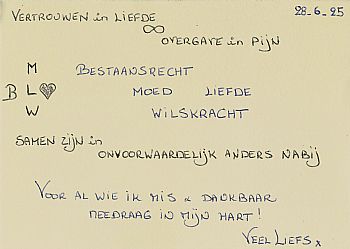 28-6-25
VERTROUWEN in LIEFDE
∞
OVERGAVE in PIJN
M BESTAANSRECHT
B L ♥ MOED LIEFDE
W WILSKRACHT
SAMEN ZIJN in
ONVOORWAARDELIJK ANDERS NABIJ
VOOR AL WIE IK MIS & DANKBAAR
MEEDRAAG IN MIJN HART!
VEEL LIEFS x